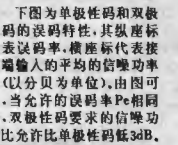 下图为单极性码和双极
码的误码特性,其纵座标
表误码率,横座标代表接
端输入的平均的信噪功率
(以分贝为单位)。由图可
.当允许的误码率Pe相同
.双极性码要求的信噪功
比允许比单极性码低3dB。